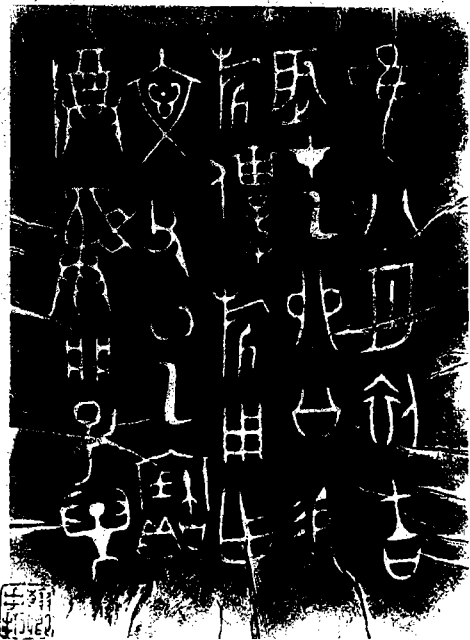 隹八月初吉
辰才乙卯公易
旂僕旂用乍
文父日乙寶
尊彝